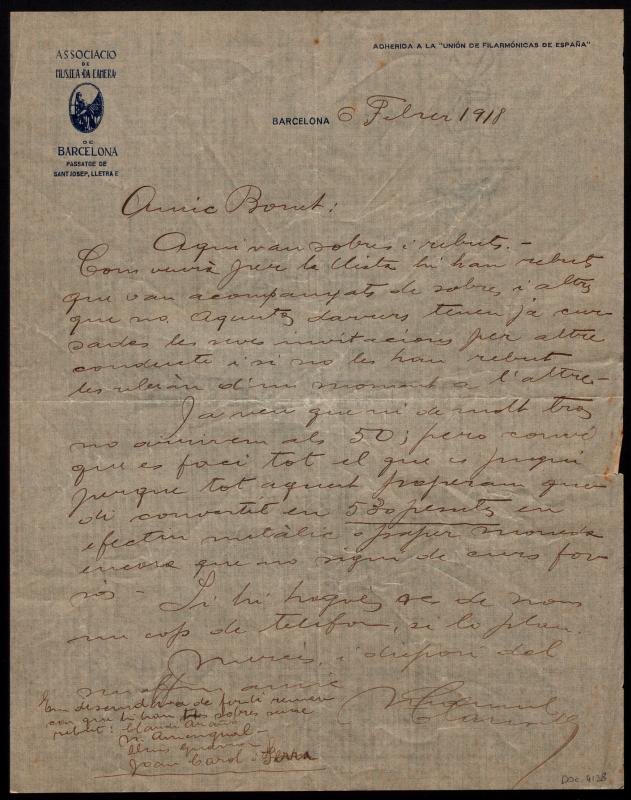 ASSOCIACIO
DE
MUSICA DA CAMERA
DE
BARCELONA
PASSATGE DE
SANT JOSEP, LLETRA E
ADHERIDA A LA "UNIÓN DE FILARMÓNICAS DE ESPAÑA"
BARCELONA 6 Febrer 1918
Amic Bonet:
Aqui van sobres i rebuts.-
Com veurà per la llista hi han rebuts
que van acompanyats de sobres i altres
que no. Aquests darrers tenen ja cur-
sades les seves invitacions per altre
conducte i si no les han rebut
les rebràn d'un moment a l'altre.-
Ja veu que ni de molt tros
no arrivem als 50; pero convé
que es faci tot el que es pugui
perque tot aquest paperam que-
di convertit en 530 pesetas en
efectiu metàlic o paper moneda
encara que no sigui de curs for-
sós - Si hi hagués res de nou
un cop de telefon, si li plau.
Mercés, i disposi del
amic
que hi han sobres sense
rebut: Claudi
Vi Amengual-
Lluis
Joan Carol i Serra
Doc. 4128